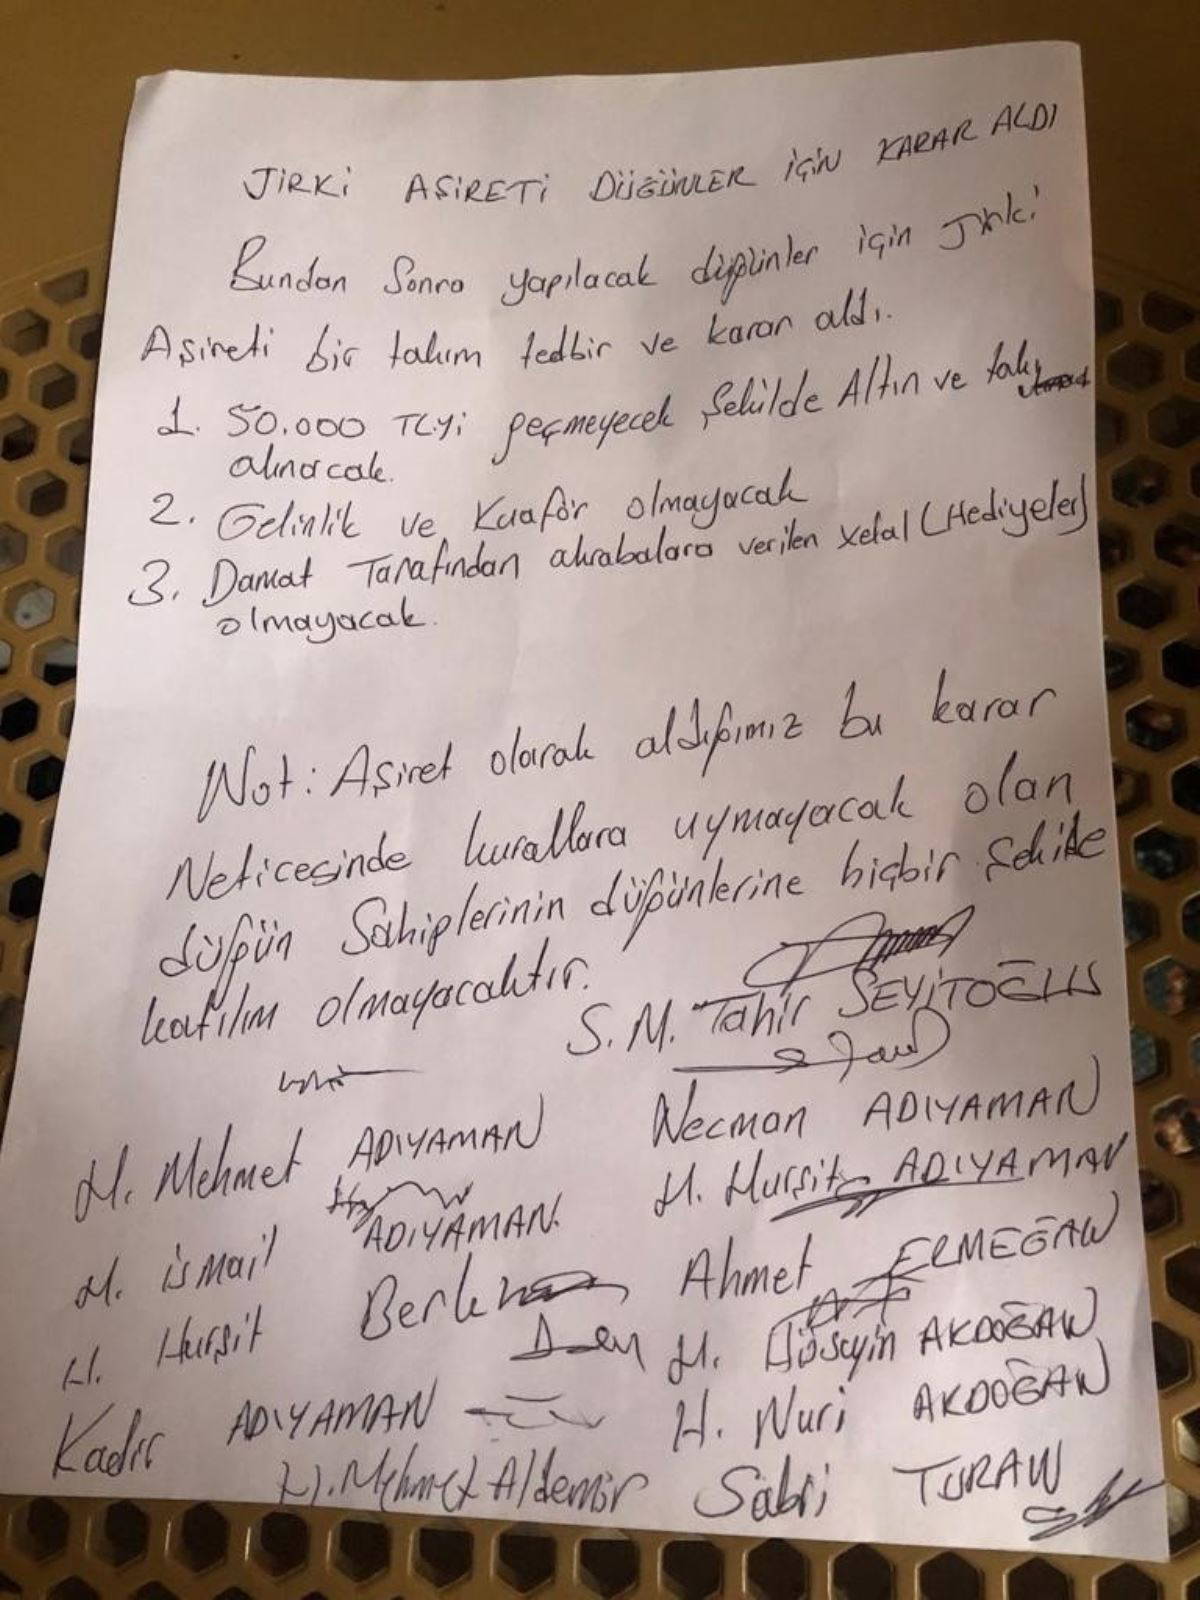 JİRKİ AŞİRETİ DÜĞÜNLER İÇİN KARAR ALDI
Bundan Sonra yapılacak düğünler için Jirki
Aşireti bir takım tedbir ve karar aldı.
1. 50.000 TL.yi geçmeyecek Şekilde Altın ve takı
alınacak.
2. Gelinlik ve Kuaför olmayacak
3. Damat Tarafından akrabalara verilen xelat (Hediyeler)
olmayacak.
Not: Aşiret olarak aldığımız bu karar
Neticesinde kurallara uymayacak olan
düğün Sahiplerinin düğünlerine hiçbir Şekilde
katılım olmayacaktır.
S. M. Tahir SEYİTOĞLU
H. Mehmet ADIYAMAN Necman ADIYAMAN
H. ismail ADIYAMAN. H. Hurşit ADIYAMAN
H. Hurşit Ahmet ERMEĞAN
H. Hüseyin AKDOĞAN
Kadir ADIYAMAN H. Nuri AKDOĞAN
H. Mehmet Aldemir Sabri TURAN